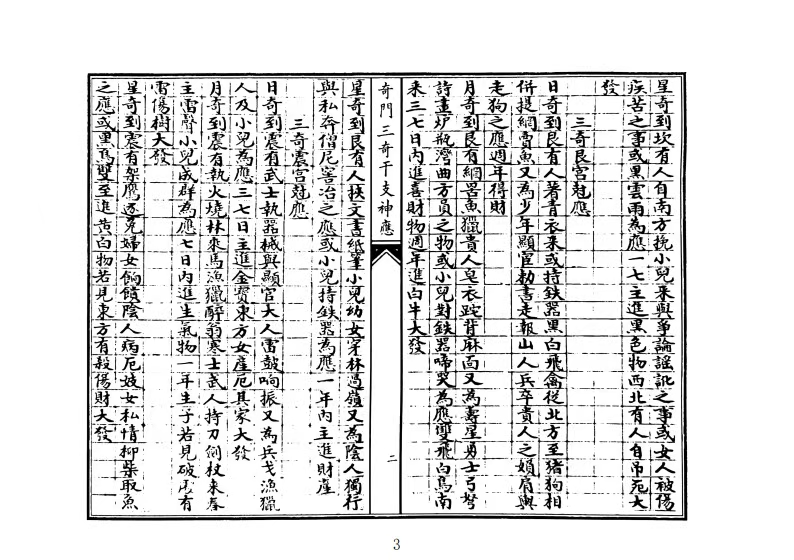 星奇到坎有人自南方挽小兒來與爭論謡訛之事或女人被傷
疾苦之事或黑雲雨為應一七主進黑色物西北有人自吊死大
發
三奇艮宮尅應
日奇到艮有人著青衣來或持鉄器黑白飛禽從北方至猪狗相
併提網賣魚又為少年顯宦勅書走報山人兵卒貴人之嬪肩輿
走狗之應週年得財
月奇到艮有網罟魚獵貴人皂衣跎背麻面又為壽星勇士弓弩
詩畫炉瓶灣曲方員之物或小兒對鉄器啼哭為應雙飛白鳥南
來三七日內進喜財物週年進白牛大發
奇門三奇干支神應
二
星奇到艮有人挾文書紙筆小兒幼女穿林過嶺又為陰人獨行
與私奔僧尼窖冶之應或小兒持鉄器為應一年內主進財産
三奇震宮尅應
日奇到震有武士執器械與顯官大人雷鼓响振又為兵戈漁獵
人及小兒為應三七日主進金寶東方女産厄其家大發
月奇到震有執火燒林來馬漁獵醉翁寒士武人持刀側杖來奉
主雷聲小兒成群為應七日內進生氣物一年生子若見破屋有
雷傷樹大發
星奇到震有架鹰逐兔婦女餉饋陰人病厄妓女私情柳柴取魚
之應或黑鳥雙至進黄白物若見東方有殺傷財大發
3